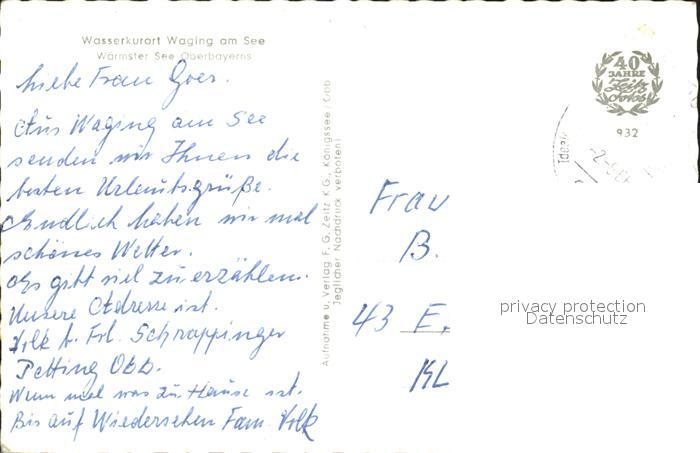 Wasserkurort Waging am See
Wärmster See Oberbayerns
Liebe Frau Goer.
Aus Waging am See
senden wir Ihnen die
besten Urlaubsgrüße.
Endlich haben wir mal
schönes Wetter.
Es gibt viel zu erzählen.
Unsere Adresse ist.
Volk b. Frl. Schrappinger
Petting Obb.
Wenn mal was zu Hause ist.
Bis auf Wiedersehen Fam. Volk
Aufnahme u. Verlag F. G. Zeitz K G., Königssee / Obb
Jeglicher Nachdruck verboten!
40
JAHRE
Zeitz
Fotos
932
Frau
B.
43 E.
KL
privacy protection
Datenschutz